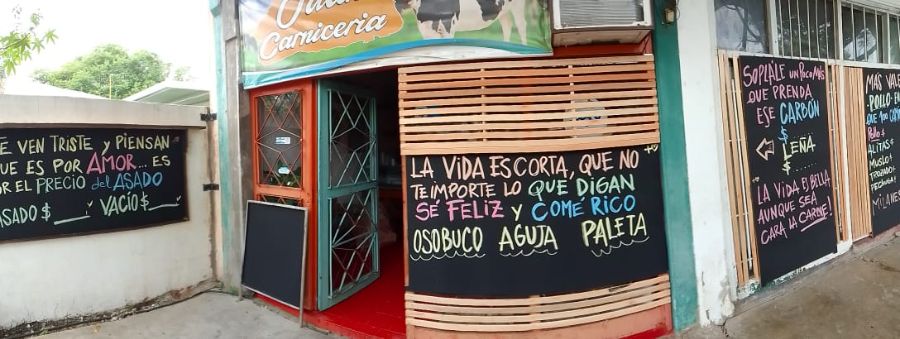 Carniceria
E VEN TRISTE Y PIENSAN
QUE ES POR AMOR... ES
POR EL PRECIO del ASADO
ASADO $ VACÍO $
LA VIDA ES CORTA, QUE NO
TE IMPORTE LO QUE DIGAN
SÉ FELIZ Y COMÉ RICO
OSOBUCO AGUJA PALETA
SOPLÁLE UN POCO MÁS
QUE PRENDA
ESE CARBÓN
$
LEÑA
$
LA VIDA ES BELLA
AUNQUE SEA
CARA LA CARNE!
MAS VALE
POLLO EN
QUE 100
Pollo $
ALITAS $
MUSLO $
PECHUGA $
MILANES